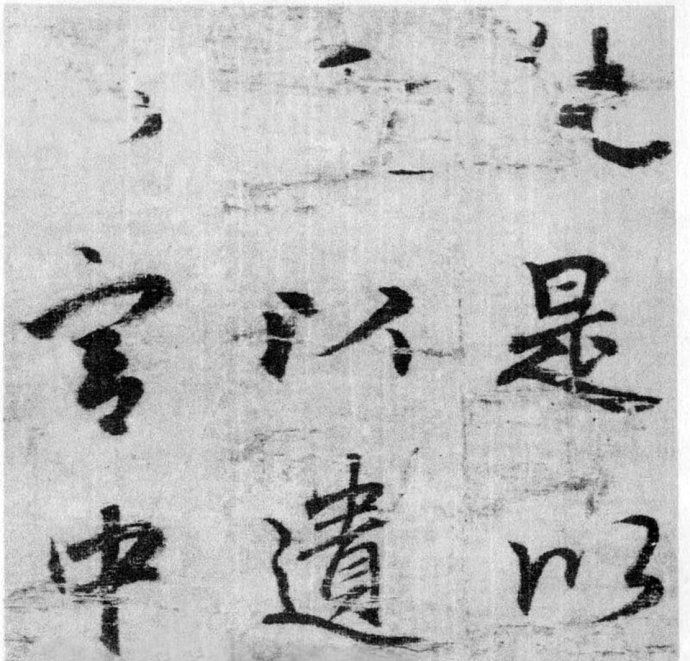 是以
以遺
宮中